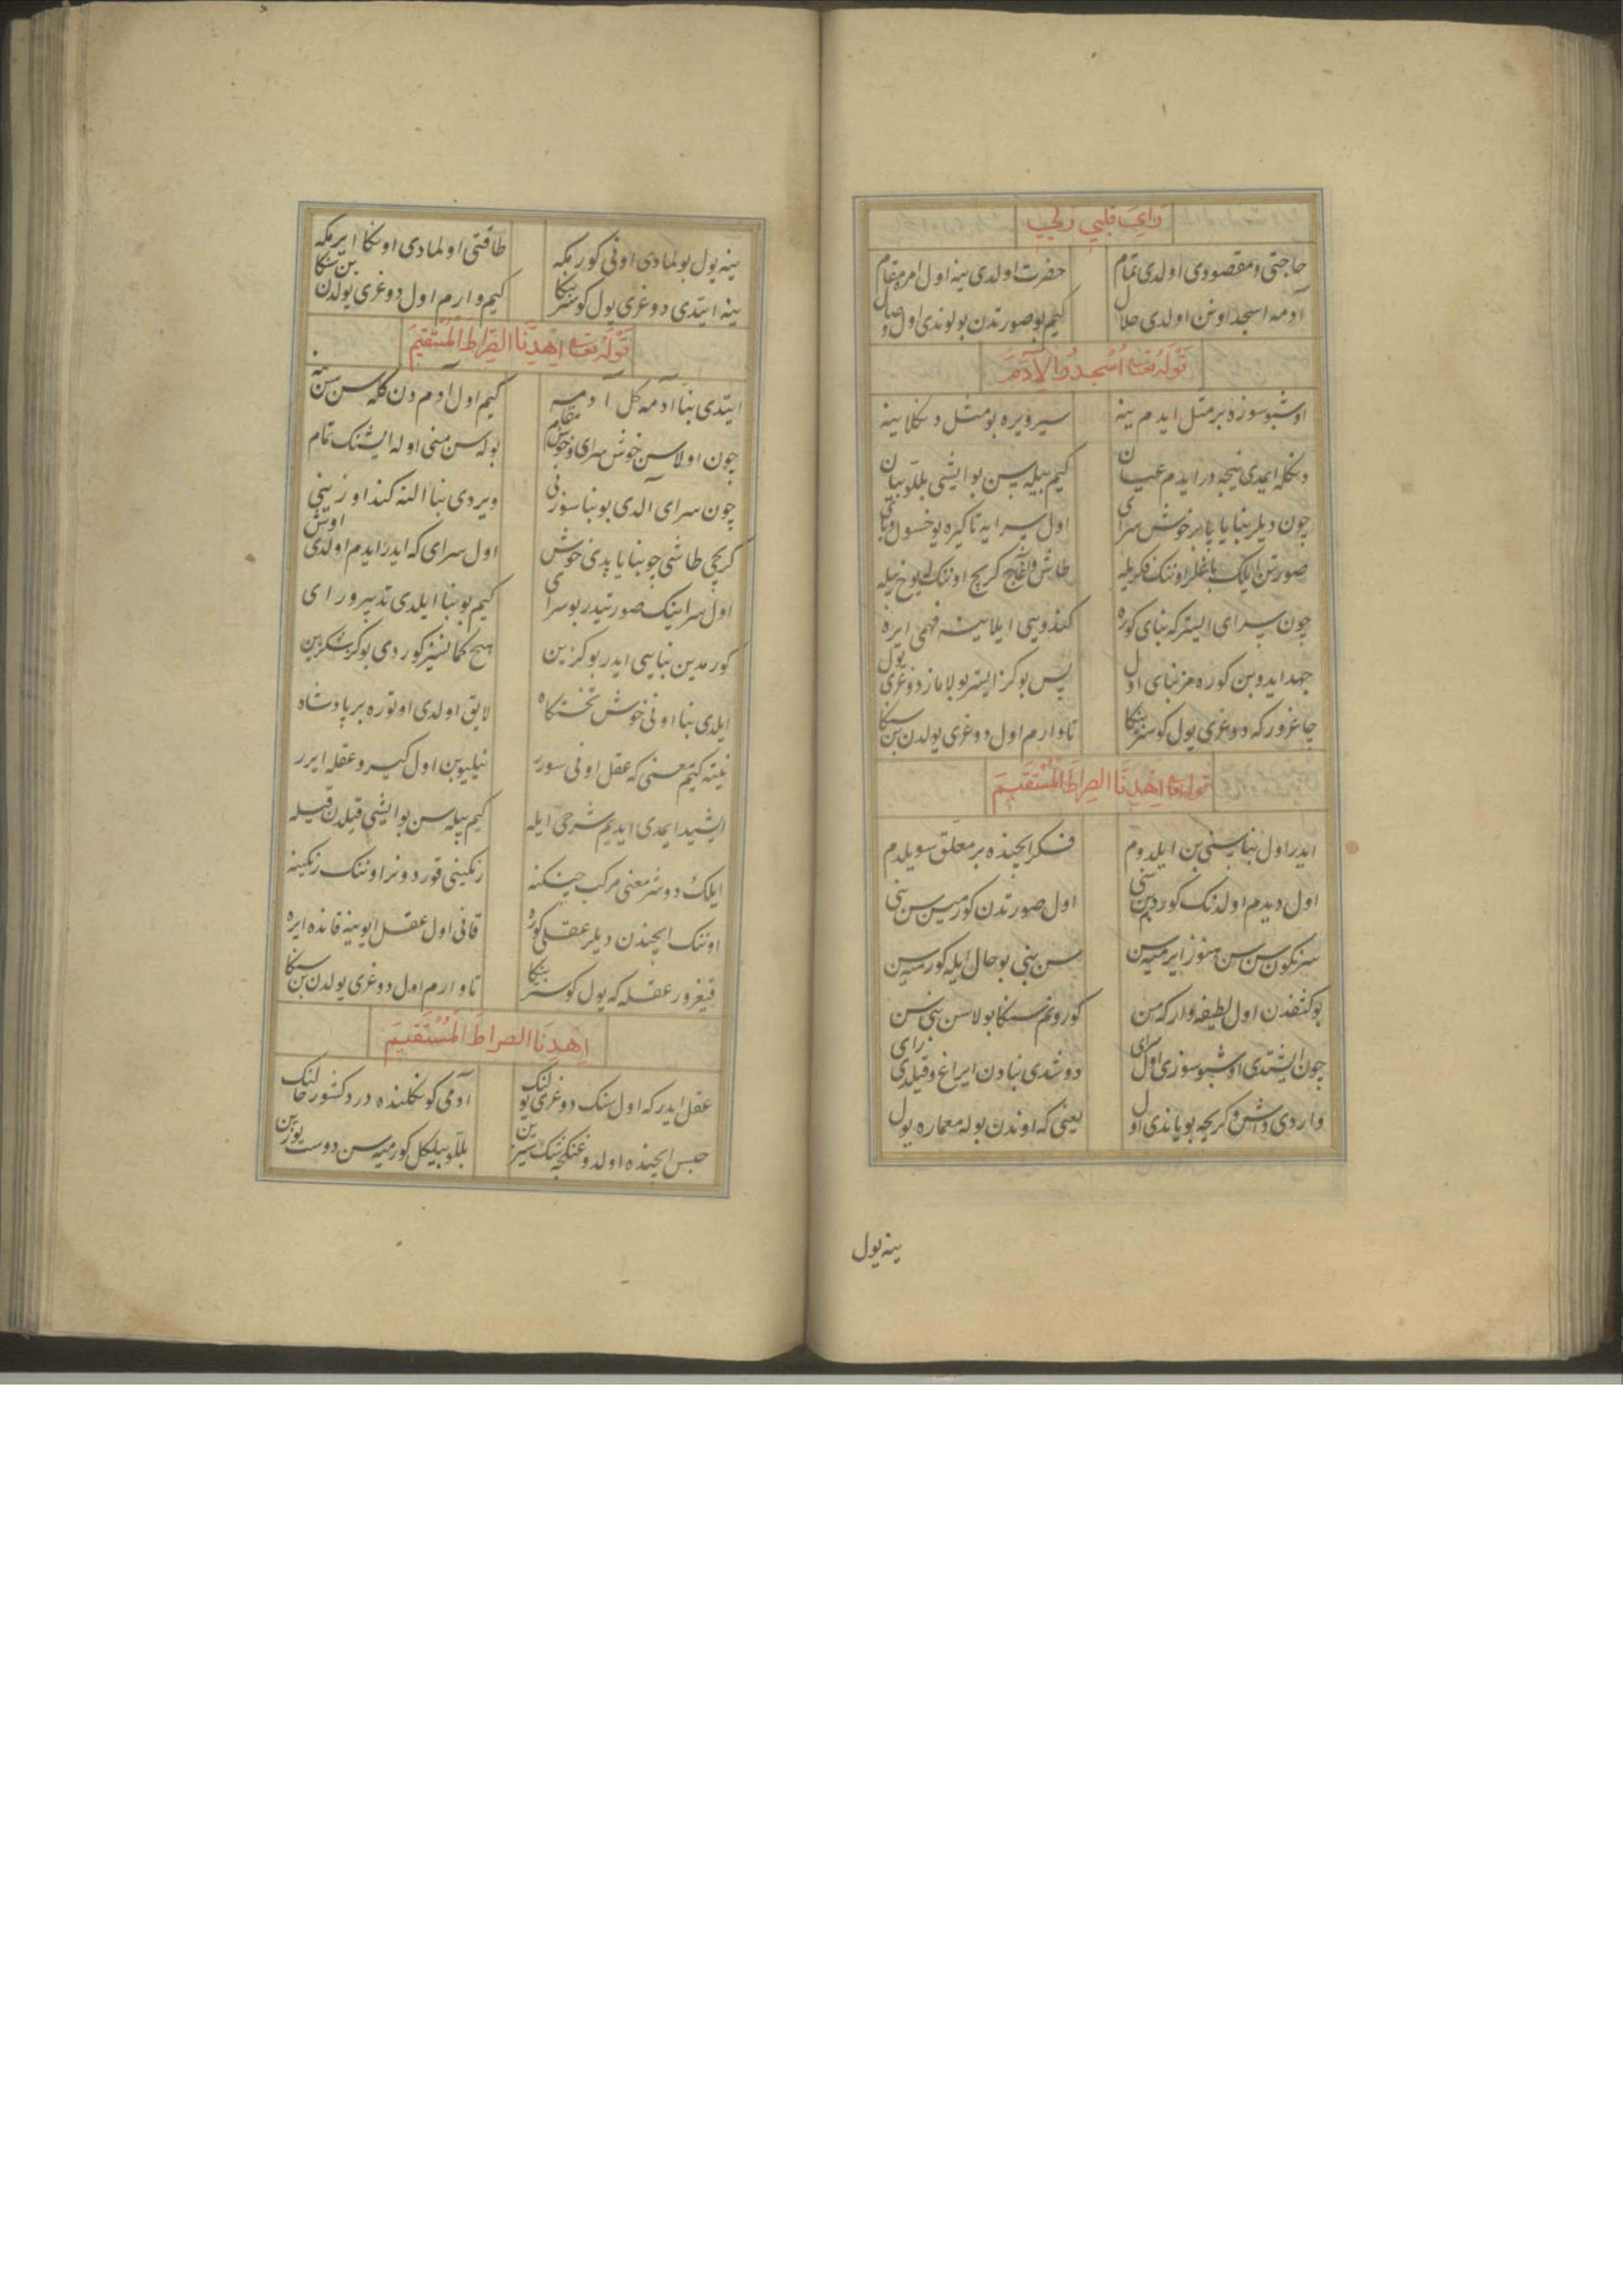 رأی قلبی ربی
حاجتی و مقصودی اولدی تمام حضرت اولدی ینه اول امره مقام
آدمه اسجد اوش اولدی حلال کیم بو صورتدن بولوندی اول وصال
قوله تعالی اسجدوا لآدم
اوشبو سوزه بر مثل ایدم ینه سیر ویره بو مثل دنکلاینه
دنکله ایمدی نیجه در ایدم عیان کیم بیله سن بو ایشی بللو بیان
چون دیلر بنا یاپا بر خوش سرای اول سرایه تا کیره یوخسول و بای
صورتن ایلک باغلر اوننک فکریله طاش و آغاج کرپچ اوننک یوخ بیله
چون سرای ایستر که بنای کوره کندوسی ایلاینه فهمی ایره
جهد ایدوبن کوره مز بنای اول پس بو کز ایستر بولاماز دوغری یول
چاغرور که دوغری یول کوستر بنکا تا وارم اول دوغری یولدن بن سنکا
قوله تعالی اهدنا الصراط المستقیم
ایدر اول بنا سنی بن ایلدوم فکر ایچنده بر معلق سویلدم
اول دیدم اولدنک کوردم بن سنی اول صورتدن کورمیسن سن بنی
سرنکون سن سن هنوز ایرمیه سن سن بنی بو حال ایله کورمیه سن
بو کثفدن اول لطیفه وار که سن کورونم سنکا بولاسن بنی سن
چون ایشتدی اوشبو سوزی اول سرای دوشدی بنادن ایراغ و قیلدی رای
واردی طاش و کرپچه بویاندی اول یعنی که اوندن بوله معماره یول
ینه یول
ینه یول بولمادی اونی کورمکه طاقتی اولمادی اونکا ایرمکه
ینه ایتدی دوغری یول کوستر بنکا کیم وارم اول دوغری یولدن بن سنکا
قوله تعالی اهدنا الصراط المستقیم
ایتدی بنا آدمه کل آدمه کیم اول آدم دن کله سن سن ینه
چون اولاسن خوش سرای و خوش مقام بوله سن منی اوله ایشنک تمام
چون سرای آلدی بو بنا سوزنی ویردی بنا النه کند اوزینی
کرپچی طاشی چو بنا یاپدی خوش اول سرای که ایدر ایدم اولدی اوش
اول سراینک صورتیدر بو سرای کیم بو بنا ایلدی تدبیر و رای
کورمدین بنایی ایدر بو کزین هیچ کمانسز کوردی بو کز شکزین
ایلدی بنا اونی خوش تختکاه لایق اولدی اوتوره بر پادشاه
نیته کیم معنی که عقل اونی سورر نیلیوبن اول کیرو عقله ایرر
ایشید ایمدی ایدیم شرحی ایله کیم بیله سن بو ایشی قیلدن قیله
ایلک دوشر معنی مرکب جینکنه زنکینی قورد ونر اوننک زنکینه
اوننک ایچندن دیلر عقلی کوره قانی اول عقل ایوینه قانده ایره
قیغرور عقله که یول کوستر بنکا تا وارم اول دوغری یولدن بن سنکا
اهدنا الصراط المستقیم
عقل ایدر که اول سنک دوغری یولنک آدمی کونکلنده در دکشور حالنک
حبس ایچنده اولدوغنکجه سنک سیزین بللو بیلکل کورمیه سن دوست یوزین